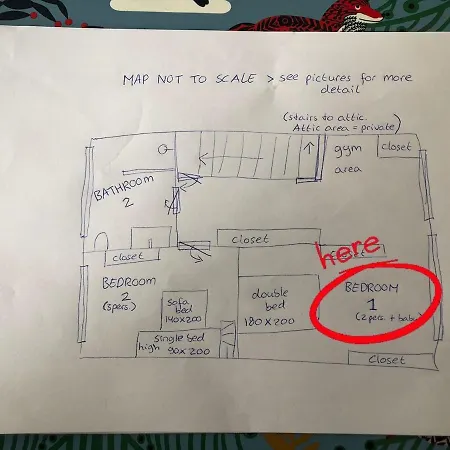 MAP NOT TO SCALE > see pictures for more
detail
(stairs to attic.
Attic area = private)
gym
area
closet
BATHROOM
2
closet
closet
here
BEDROOM
2
(5pers.)
sofa
bed
140x200
single bed
high 90x200
double
bed
180x200
BEDROOM
1
(2 pers. + baby)
closet